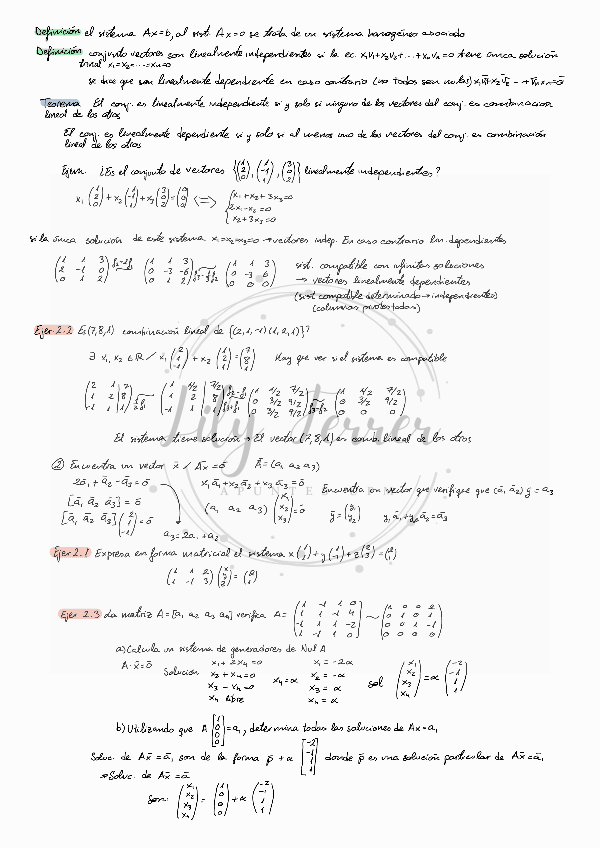 Definición el sistema Ax=b, al sist. Ax=0 se trata de un sistema homogéneo asociado
Definición conjunto vectores son linealmente independientes si la ec. x₁v₁+x₂v₂+...+xₙvₙ=0 tiene única solución
trivial x₁=x₂=...=xₙ=0
se dice que son linealmente dependiente en caso contrario (no todos sean nulos)
Teorema El conj. es linealmente independiente si y solo si ninguno de los vectores del conj. es combinacion
lineal de los otros
El conj. es linealmente dependiente si y solo si al menos uno de los vectores del conj. es combinación
lineal de los otros
Ejem. ¿Es el conjunto de vectores {(1 2 0), (1 -1 1), (3 0 2)} linealmente independientes?
x₁ (1 2 0) + x₂ (1 -1 1) + x₃ (3 0 2) = (0 0 0) <=> { x₁+x₂+3x₃=0
2x₁-x₂=0
x₂+3x₃=0
si la única solución de este sistema x₁=x₂=x₃=0 → vectores indep. En caso contrario lin. dependientes
(1 1 3 / 2 -1 0 / 0 1 2) (1 1 3 / 0 -3 -6 / 0 1 2) (1 1 3 / 0 -3 -6 / 0 0 0) sist. compatible con infinitas soluciones
→ vectores linealmente dependientes
(sist compatible determinado → independientes)
(columnas pivotes todas)
Ejer 2.2 Es (7,8,1) combinación lineal de {(2,1,-1) (1,2,1)}?
∃ x₁, x₂ ∈ ℝ / x₁ (2 1 -1) + x₂ (1 2 1) = (7 8 1) Hay que ver si el sistema es compatible
(2 1 | 7 / 1 2 | 8 / -1 1 | 1) (1 1/2 | 7/2 / 1 2 | 8 / -1 1 | 1) (1 1/2 7/2 / 0 3/2 9/2 / 0 3/2 9/2) (1 1/2 7/2 / 0 3/2 9/2 / 0 0 0)
El sistema tiene solución → El vector (7,8,1) es comb. lineal de los otros
② Encuentra un vector x̄ / Ax̄=ō Ā=(a₁ a₂ a₃)
2ā₁+ā₂-ā₃=ō x₁ā₁+x₂ā₂+x₃ā₃=ō
[ā₁ ā₂ ā₃]=ō (a₁ a₂ a₃) (x₁ x₂ x₃)=ō Encuentra un vector que verifique que (ā₁ ā₂) ȳ=a₃
[ā₁ ā₂ ā₃] (2 1 -1)=ō ȳ=(y₁ y₂) y₁ā₁+y₂ā₂=ā₃
a₃=2a₁+a₂
Ejer 2.1 Expresa en forma matricial el sistema x (1 1)+y (1 -1)+z (2 3)=(0 1)
(1 1 2 / 1 -1 3) (x y z)=(0 1)
Ejer 2.3 La matriz A=[a₁ a₂ a₃ a₄] verifica A= (1 -1 1 0 / 1 1 -1 4 / -1 1 1 -2 / -1 -1 1 0) ~ (1 0 0 2 / 0 1 0 1 / 0 0 1 -1 / 0 0 0 0)
a) Calcula un sistema de generadores de Nul A
A·x̄=ō Solución x₁+2x₄=0 x₁=-2α
x₂+x₄=0 x₄=α x₂=-α sol (x₁ x₂ x₃ x₄)=α (-2 -1 1 1)
x₃-x₄=0 x₃=α
x₄ libre x₄=α
b) Utilizando que A [1 0 0 0]=a₁, determina todas las soluciones de Ax=a₁
Soluc. de Ax̄=ā₁ son de la forma p̄+α [-2 -1 1 1] donde p̄ es una solución particular de Ax̄=ā₁
→ Soluc. de Ax̄=ā
son: (x₁ x₂ x₃ x₄)=(1 0 0 0)+α (-2 -1 1 1)
Lily Ferrer